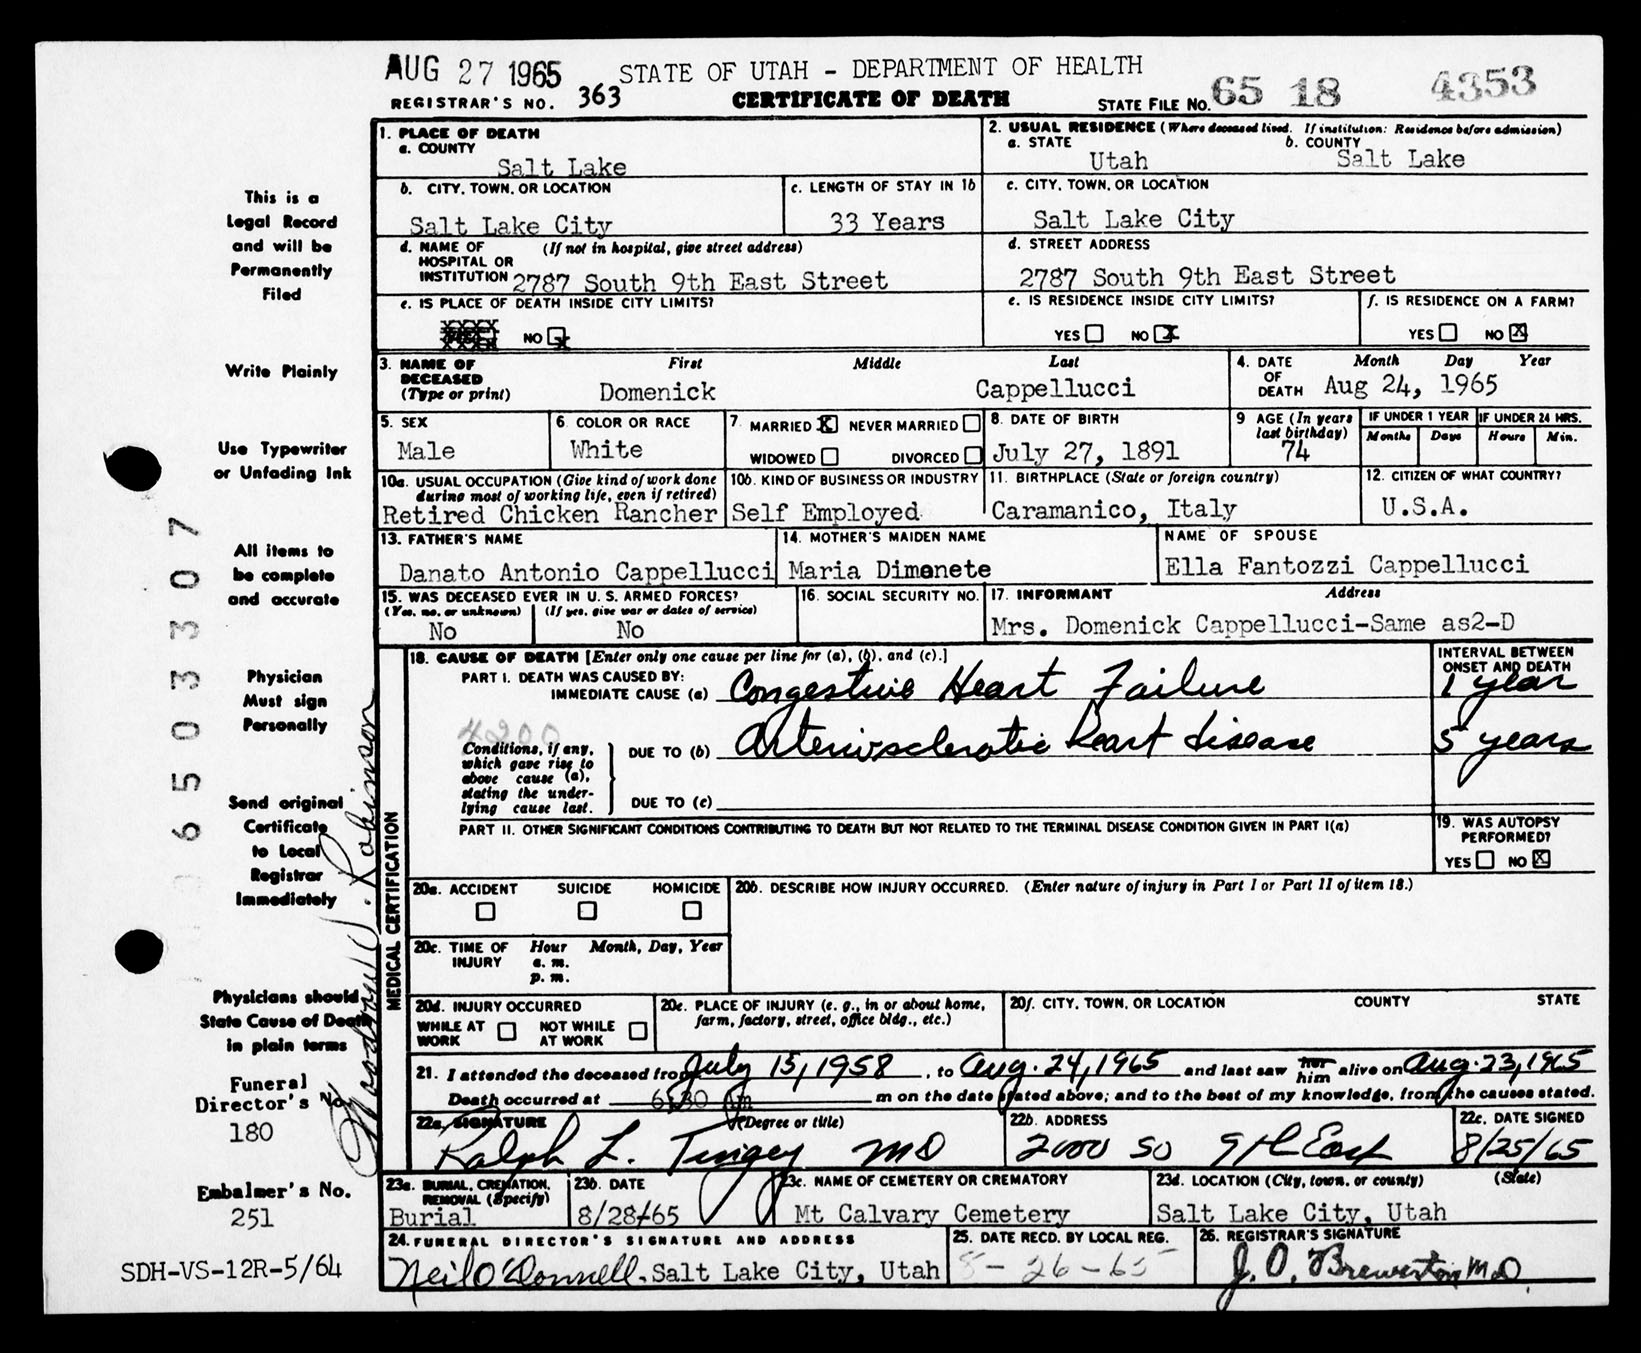 AUG 27 1965 STATE OF UTAH - DEPARTMENT OF HEALTH
REGISTRAR'S NO. 363 CERTIFICATE OF DEATH STATE FILE NO. 65 18 4353
1. PLACE OF DEATH
a. COUNTY
Salt Lake
2. USUAL RESIDENCE (Where deceased lived. If institution: Residence before admission)
a. STATE b. COUNTY
Utah Salt Lake
b. CITY, TOWN, OR LOCATION
Salt Lake City
c. LENGTH OF STAY IN 1b
33 Years
c. CITY, TOWN, OR LOCATION
Salt Lake City
d. NAME OF (If not in hospital, give street address)
HOSPITAL OR
INSTITUTION 2787 South 9th East Street
d. STREET ADDRESS
2787 South 9th East Street
e. IS PLACE OF DEATH INSIDE CITY LIMITS?
XXXX NO X
e. IS RESIDENCE INSIDE CITY LIMITS?
YES NO X
f. IS RESIDENCE ON A FARM?
YES NO X
3. NAME OF First Middle Last
DECEASED
(Type or print) Domenick Cappellucci
4. DATE Month Day Year
OF
DEATH Aug 24, 1965
5. SEX
Male
6. COLOR OR RACE
White
7. MARRIED X NEVER MARRIED
WIDOWED DIVORCED
8. DATE OF BIRTH
July 27, 1891
9 AGE (In years
last birthday)
74
IF UNDER 1 YEAR IF UNDER 24 HRS.
Months Days Hours Min.
10a. USUAL OCCUPATION (Give kind of work done
during most of working life, even if retired)
Retired Chicken Rancher
10b. KIND OF BUSINESS OR INDUSTRY
Self Employed
11. BIRTHPLACE (State or foreign country)
Caramanico, Italy
12. CITIZEN OF WHAT COUNTRY?
U.S.A.
13. FATHER'S NAME
Danato Antonio Cappellucci
14. MOTHER'S MAIDEN NAME
Maria Dimenete
NAME OF SPOUSE
Ella Fantozzi Cappellucci
15. WAS DECEASED EVER IN U. S. ARMED FORCES?
(Yes, no, or unknown) (If yes, give war or dates of service)
No No
16. SOCIAL SECURITY NO.
17. INFORMANT Address
Mrs. Domenick Cappellucci-Same as2-D
MEDICAL CERTIFICATION
18. CAUSE OF DEATH [Enter only one cause per line for (a), (b), and (c).]
PART I. DEATH WAS CAUSED BY:
IMMEDIATE CAUSE (a) Congestive Heart Failure
INTERVAL BETWEEN
ONSET AND DEATH
1 year
4200
Conditions, if any,
which gave rise to
above cause (a),
stating the under-
lying cause last.
DUE TO (b) Arteriosclerotic heart disease 5 years
DUE TO (c)
PART II. OTHER SIGNIFICANT CONDITIONS CONTRIBUTING TO DEATH BUT NOT RELATED TO THE TERMINAL DISEASE CONDITION GIVEN IN PART I(a)
19. WAS AUTOPSY
PERFORMED?
YES NO X
20a. ACCIDENT SUICIDE HOMICIDE
20b. DESCRIBE HOW INJURY OCCURRED. (Enter nature of injury in Part I or Part II of item 18.)
20c. TIME OF Hour Month, Day, Year
INJURY a. m.
p. m.
20d. INJURY OCCURRED
WHILE AT NOT WHILE
WORK AT WORK
20e. PLACE OF INJURY (e. g., in or about home,
farm, factory, street, office bldg., etc.)
20f. CITY, TOWN, OR LOCATION COUNTY STATE
21. I attended the deceased from July 15, 1958, to Aug. 24, 1965 and last saw her him alive on Aug. 23, 1965
Death occurred at 6:30 Am m on the date stated above; and to the best of my knowledge, from the causes stated.
22a. SIGNATURE (Degree or title)
Ralph L. Tingey MD
22b. ADDRESS
2000 So 9th East
22c. DATE SIGNED
8/25/65
23a. BURIAL, CREMATION,
REMOVAL (Specify)
Burial
23b. DATE
8/28/65
23c. NAME OF CEMETERY OR CREMATORY
Mt Calvary Cemetery
23d. LOCATION (City, town, or county) (State)
Salt Lake City, Utah
24. FUNERAL DIRECTOR'S SIGNATURE AND ADDRESS
Neil O'Donnell, Salt Lake City, Utah
25. DATE RECD. BY LOCAL REG.
8-26-65
26. REGISTRAR'S SIGNATURE
J. O. Brewerton MD
This is a
Legal Record
and will be
Permanently
Filed
Write Plainly
Use Typewriter
or Unfading Ink
All items to
be complete
and accurate
Physician
Must sign
Personally
Send original
Certificate
to Local
Registrar
Immediately
Physicians should
State Cause of Death
in plain terms
Funeral
Director's No.
180
Embalmer's No.
251
SDH-VS-12R-5/64
6503307
Woodrow J. Robinson